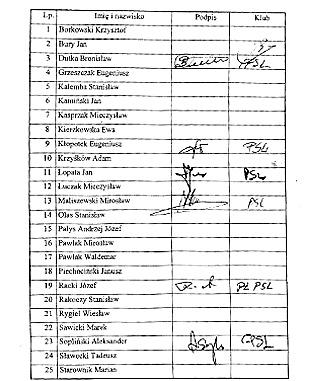 Lp. Imię i nazwisko Podpis Klub
1 Borkowski Krzysztof
2 Bury Jan
3 Dutka Bronisław PSL
4 Grzeszczak Eugeniusz
5 Kalemba Stanisław
6 Kamiński Jan
7 Kasprzak Mieczysław
8 Kierzkowska Ewa
9 Kłopotek Eugeniusz PSL
10 Krzyśków Adam
11 Łopata Jan PSL
12 Łuczak Mieczysław
13 Maliszewski Mirosław PSL
14 Olas Stanisław
15 Pałys Andrzej Józef
16 Pawlak Mirosław
17 Pawlak Waldemar
18 Piechociński Janusz
19 Racki Józef PSL
20 Rakoczy Stanisław
21 Rygiel Wiesław
22 Sawicki Marek
23 Sopliński Aleksander PSL
24 Sławecki Tadeusz
25 Starownik Marian